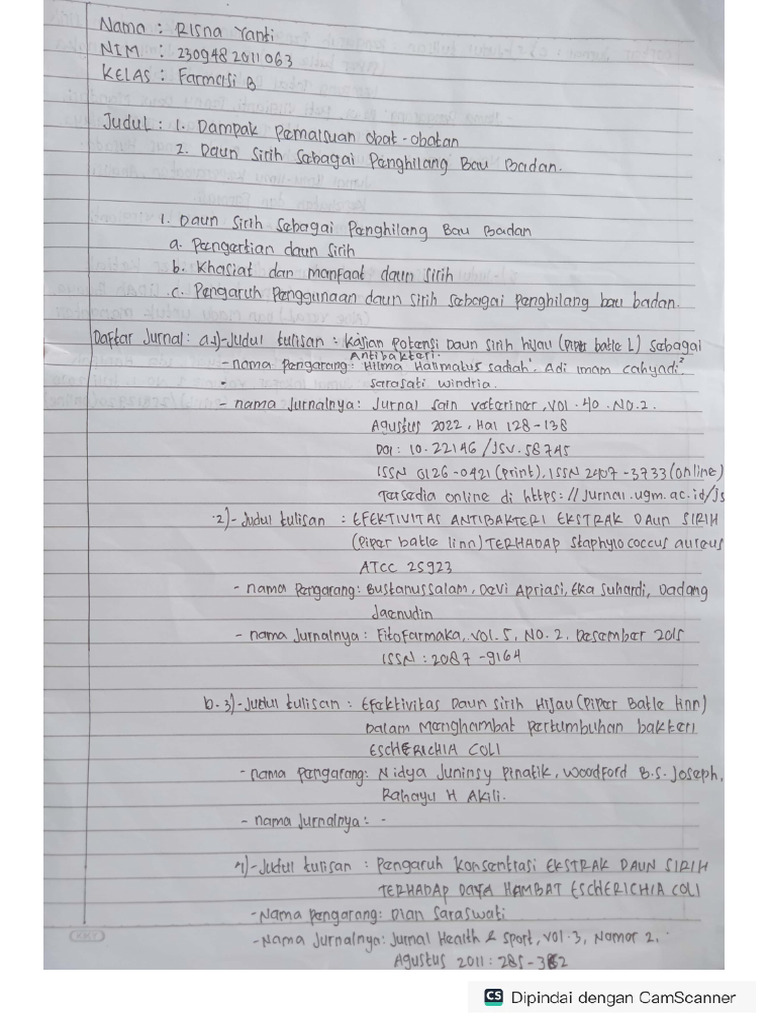 Nama : Risna Yanti
NIM : 230948 2011 063
KELAS : Farmasi B
Judul : 1. Dampak Pemalsuan obat-obatan
2. Daun Sirih Sebagai Penghilang Bau Badan.
1. Daun Sirih Sebagai Penghilang Bau Badan
a. Pengertian daun sirih
b. Khasiat dan manfaat daun sirih
c. Pengaruh Penggunaan daun sirih sebagai penghilang bau badan.
Daftar Jurnal: a.1)-Judul tulisan : Kajian Potensi Daun sirih hijau (Piper batle L) sebagai
Antibakteri.
- nama pengarang: Hilma Halimatus sadiah¹. Adi imam cahyadi²
sarasati windria.
- nama Jurnalnya: Jurnal sain veteriner, vol. 40. NO. 2.
Agustus 2022. Hal 128-138
DOI: 10.22146/JSV.58745
ISSN 0126-0421 (print), ISSN 2407-3733 (online)
Tersedia online di https://Jurnal.ugm.ac.id/js
2)-Judul tulisan : EFEKTIVITAS ANTIBAKTERI EKSTRAK DAUN SIRIH
(Piper batle linn) TERHADAP Staphylo coccus aureus
ATCC 25923
- nama Pengarang: Bustanussalam, Devi Apriasi, Eka Suhardi, Dadang
Jaenudin
- nama Jurnalnya : Fitofarmaka, vol. 5, NO. 2, Desember 2015
ISSN : 2087-9164
b. 3)-Judul tulisan : Efektivitas Daun sirih Hijau (Piper Batle linn)
Dalam Menghambat pertumbuhan bakteri
ESCHERICHIA COLI
- nama pengarang: Nidya Juninsy Pinatik, Woodford B.S. Joseph,
Rahayu H Akili.
- nama Jurnalnya : -
4)-Judul tulisan : Pengaruh Konsentrasi EKSTRAK DAUN SIRIH
TERHADAP DAYA HAMBAT ESCHERICHIA COLI
- Nama pengarang: Dian Saraswati
- Nama Jurnalnya: Jurnal Health & Sport, vol. 3, Nomor 2,
Agustus 2011 : 285-362
CS Dipindai dengan CamScanner